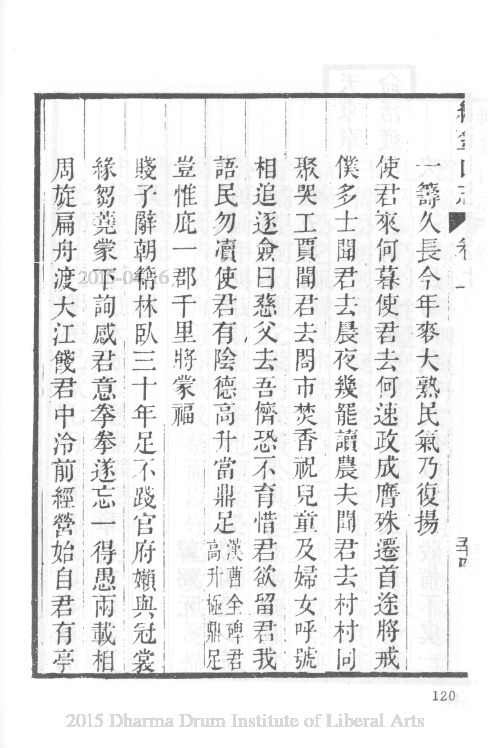 續金山志 卷上
一籌久長今年麥大熟民氣乃復揚
使君來何暮使君去何速政成膺殊遷首途將戒
僕多士聞君去晨夜幾罷讀農夫聞君去村村同
聚哭工賈聞君去閉市焚香祝兒童及婦女呼號
相追逐僉曰慈父去吾儕恐不育惜君欲留君我
語民勿瀆使君有陰德高升當鼎足 漢酉全碑君高升極鼎足
豈惟庇一郡千里將蒙福
賤子辭朝籍林臥三十年足不踐官府嬾與冠裳
緣芻蕘蒙下詢感君意拳拳遂忘一得愚兩載相
周旋扁舟渡大江餞君中泠前經營始自君有亭
120
2015-04-16
2015 Dharma Drum Institute of Liberal Arts